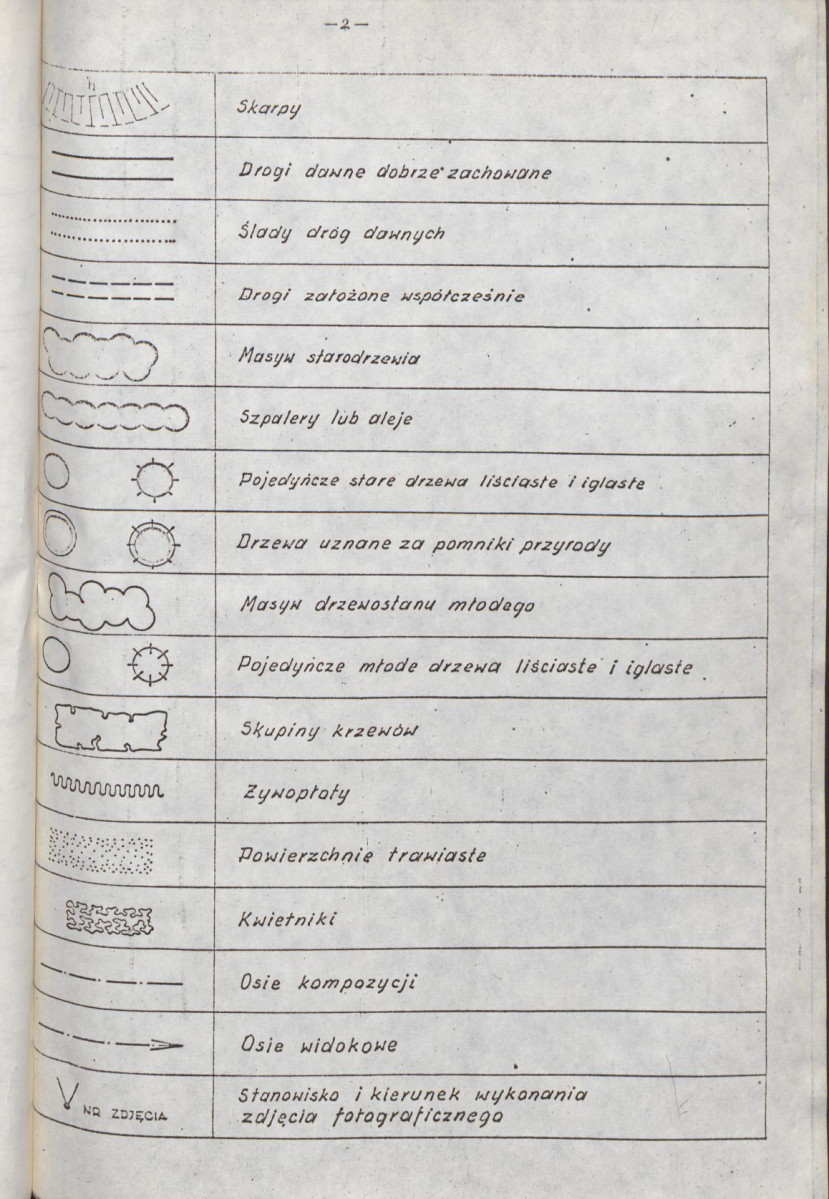 -2-
h
Skarpy
Drogi dawne dobrze zachowane
Ślady dróg dawnych
Drogi założone współcześnie
Masyw starodrzewia
Szpalery lub aleje
Pojedyńcze stare drzewa liściaste i iglaste
Drzewa uznane za pomniki przyrody
Masyw drzewostanu młodego
Pojedyńcze młode drzewa liściaste i iglaste
Skupiny krzewów
Zywopłoty
Powierzchnie trawiaste
Kwietniki
Osie kompozycji
Osie widokowe
NR ZDJĘCIA
Stanowisko i kierunek wykonania
zdjęcia fotograficznego